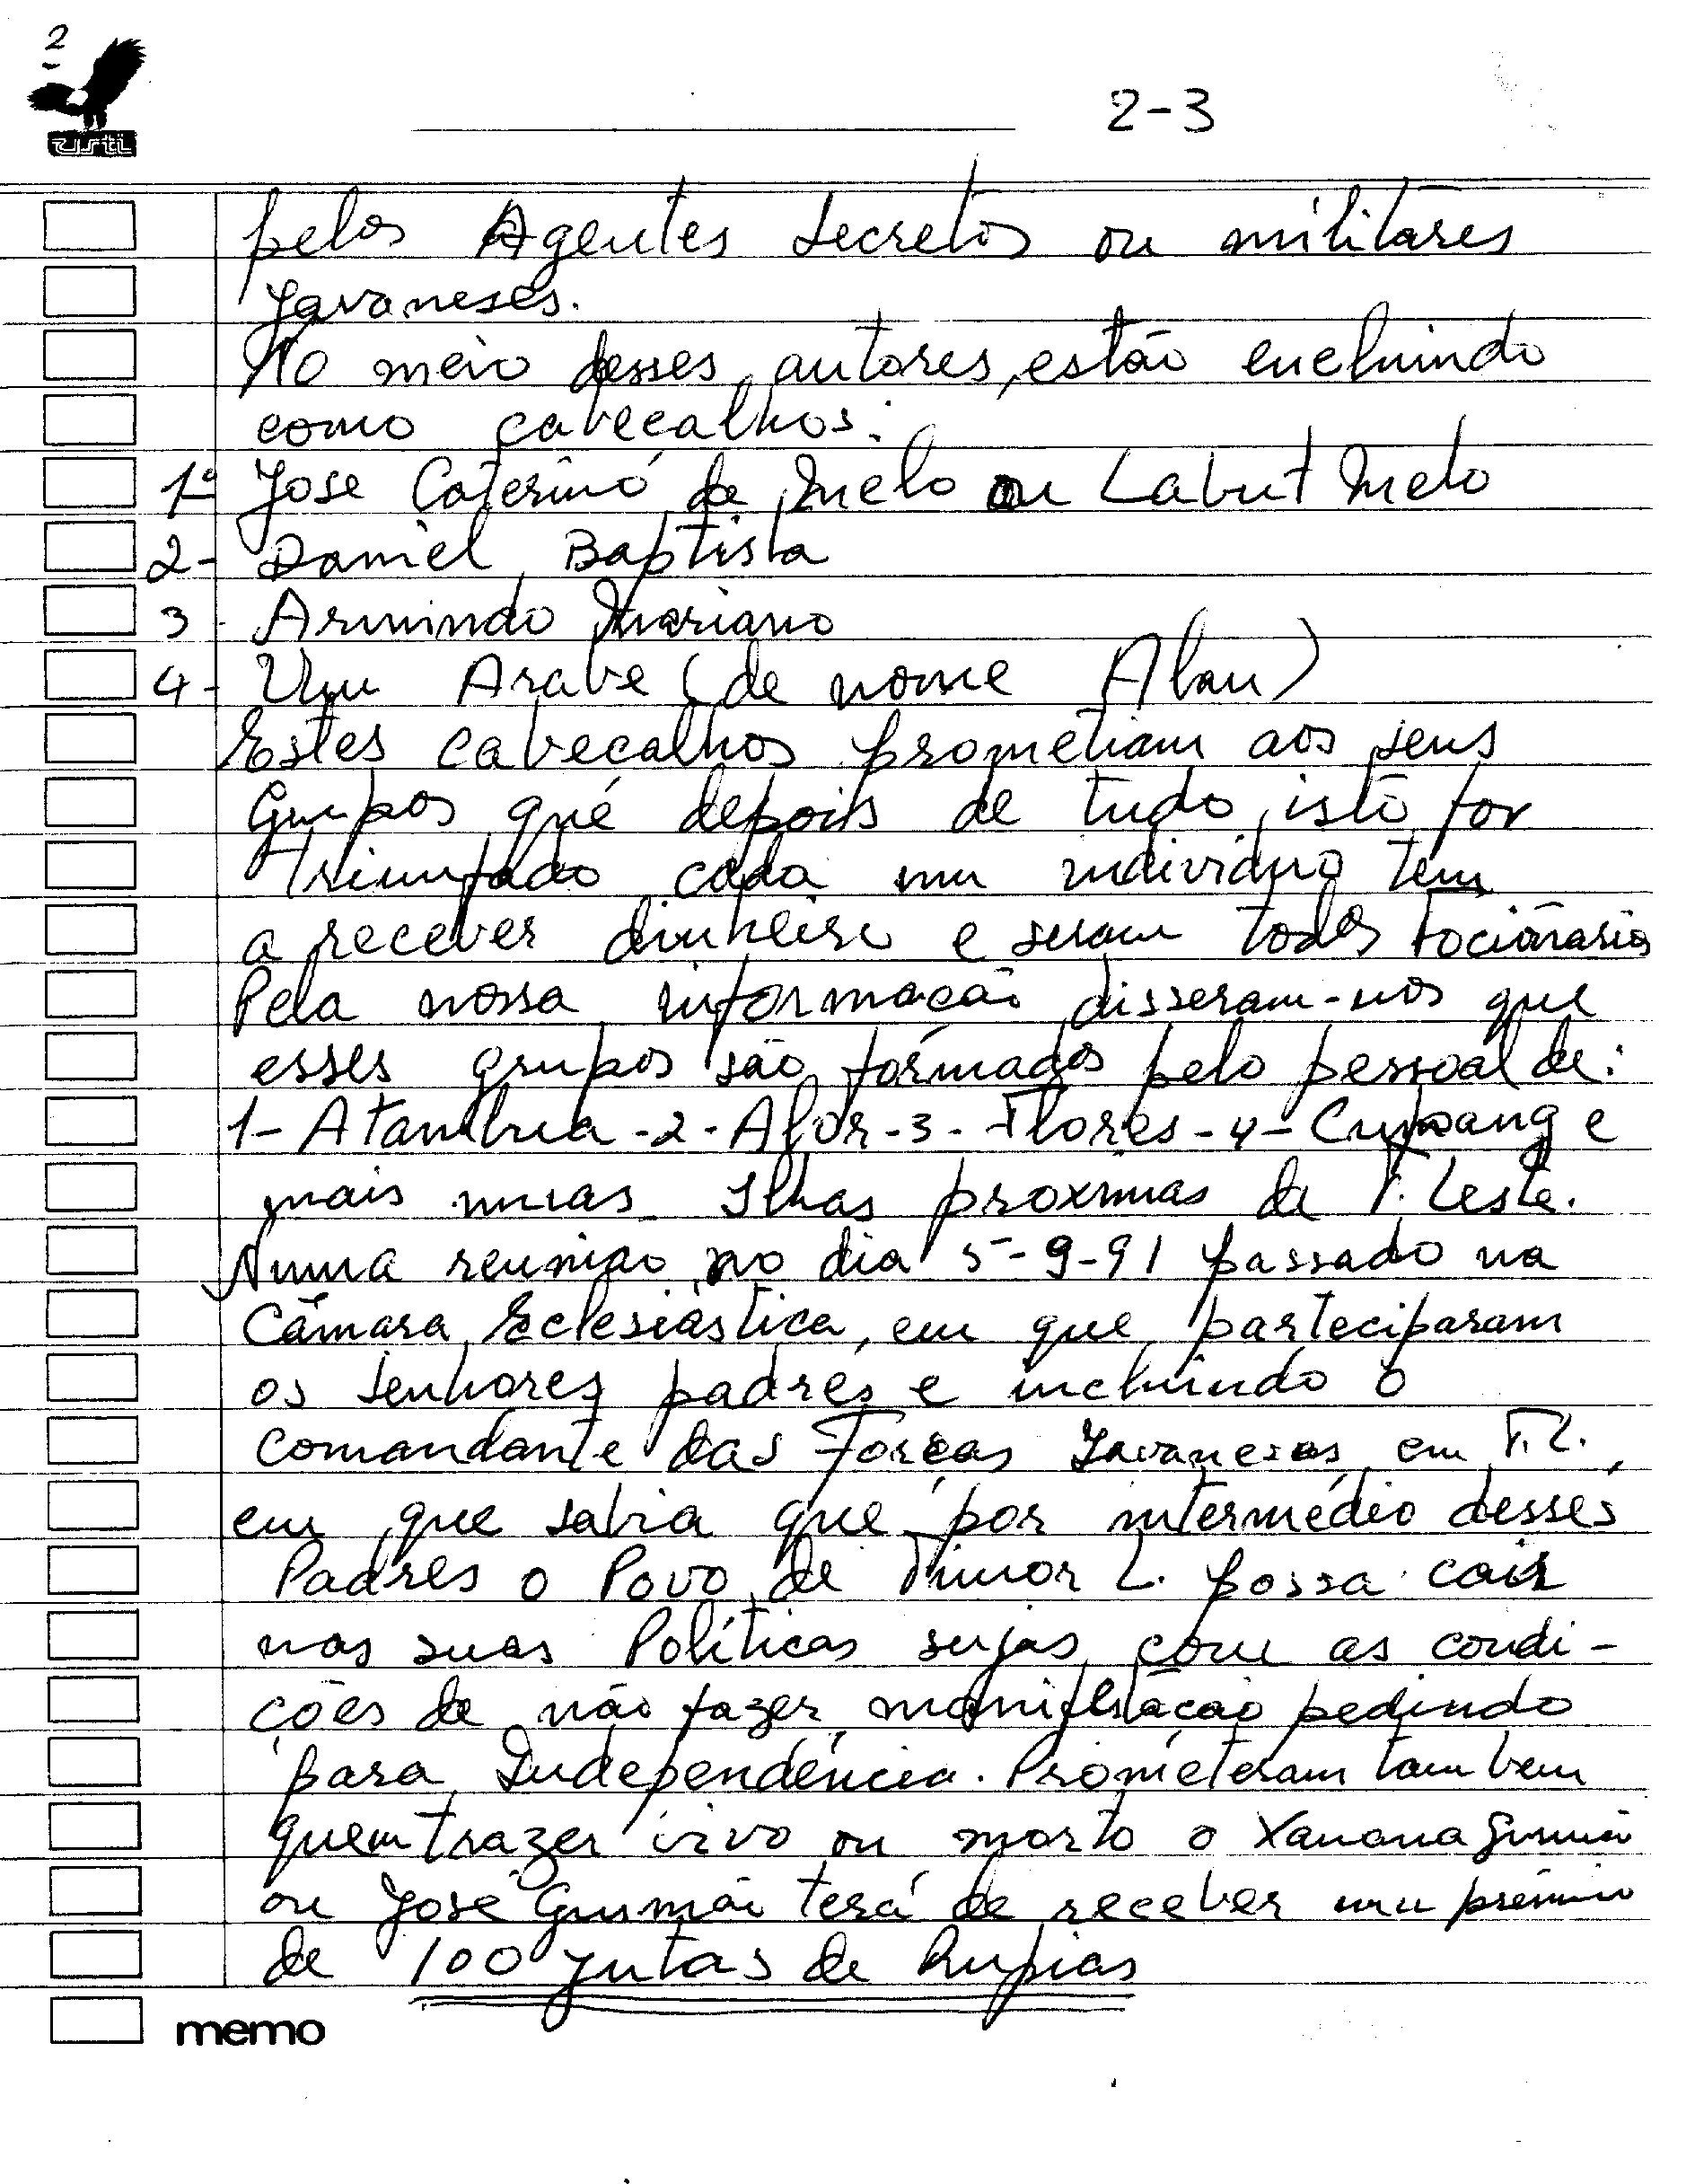 2
usti
2-3
pelos Agentes secretos ou militares
Javaneses.
No meio desses autores, estão encluindo
como cabecalhos:
1º Jose Caterino de Melo ou Labut Melo
2- Daniel Baptista
3- Armindo Mariano
4- Um Arabe (de nome Alan)
Estes cabecalhos prometiam aos seus
Grupos que depois de tudo isto for
triunfado cada um individuo tem
a receber dinheiro e seram todos focionarios
Pela nossa informação disseram-nos que
esses grupos são formados pelo pessoal de:
1- Atambua -2- Alor -3- Flores -4- Cupang e
mais nuas Ilhas proximas de T. Leste.
Numa reunião no dia 5-9-91 passado na
Câmara Eclesiástica, em que parteciparam
os senhores padres e incluindo o
Comandante das Forças Javanesas em T.L.
em que sabia que por intermédio desses
Padres o Povo de Timor L. possa cair
nas suas Políticas sujas com as condi-
ções de não fazer manifestação pedindo
para Independência. Prometeram tambem
quem trazer vivo ou morto o Xanana Gusmão
ou José Gusmão terá de receber um prémio
de 100 jutas de Rupias
memo